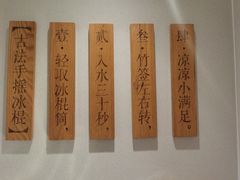 【古法手摇冰棍】
壹·轻取冰棍筒，
贰·入水三十秒，
叁·竹签左右转，
肆·凉凉小满足。